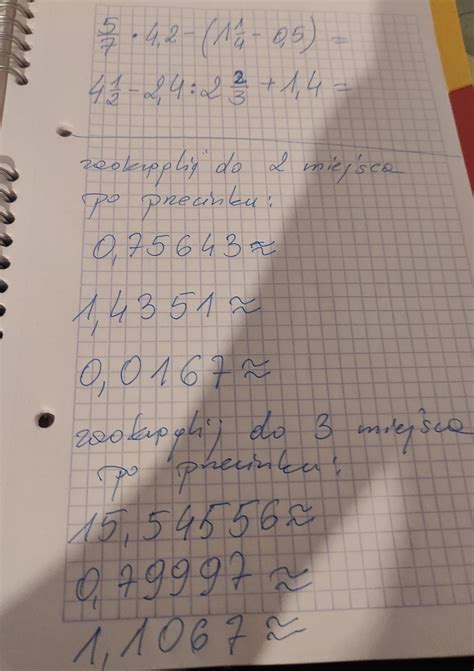 5/7 · 4,2 - (1 1/4 - 0,5) =
4 1/2 - 2,4 : 2 2/3 + 1,4 =
zaokrąglij do 2 miejsca
po przecinku:
0,75643≈
1,4351≈
0,0167≈
zaokrąglij do 3 miejsca
po przecinku:
15,54556≈
0,79997≈
1,1067≈